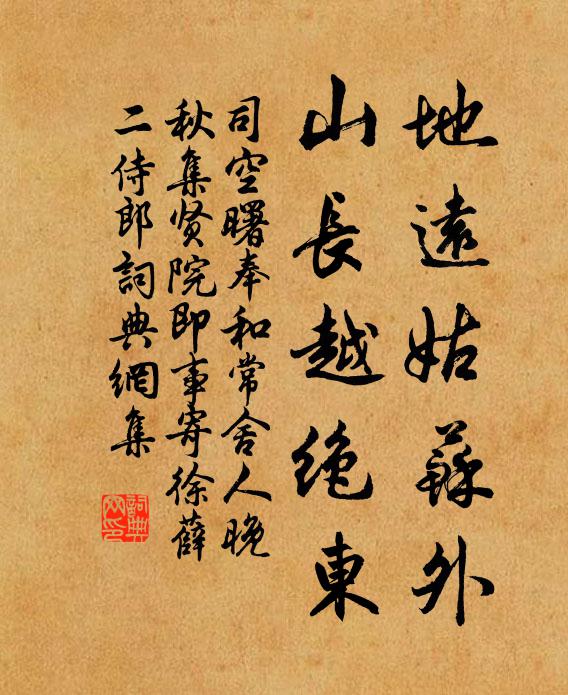 地遠姑蘇外
山長越絶東
司空曙奉和常舍人晚
秋集贤院即事寄徐薛
二侍郎詞典網集
詞典
网印